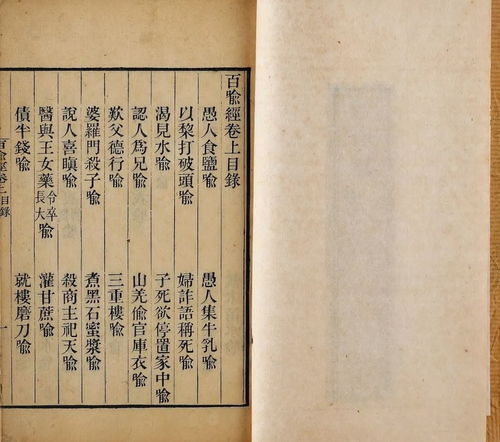 百喻經卷上目錄
愚人食鹽喻 愚人集牛乳喻
以棃打破頭喻 婦詐語稱死喻
渴見水喻 子死欲停置家中喻
認人爲兄喻 山羌偷官庫衣喻
歎父德行喻 三重樓喻
婆羅門殺子喻 煮黑石蜜漿喻
說人喜瞋喻 殺商主祀天喻
醫與王女藥令卒長大喻 灌甘蔗喻
債半錢喻 就樓磨刀喻
百喻經卷上目錄 一